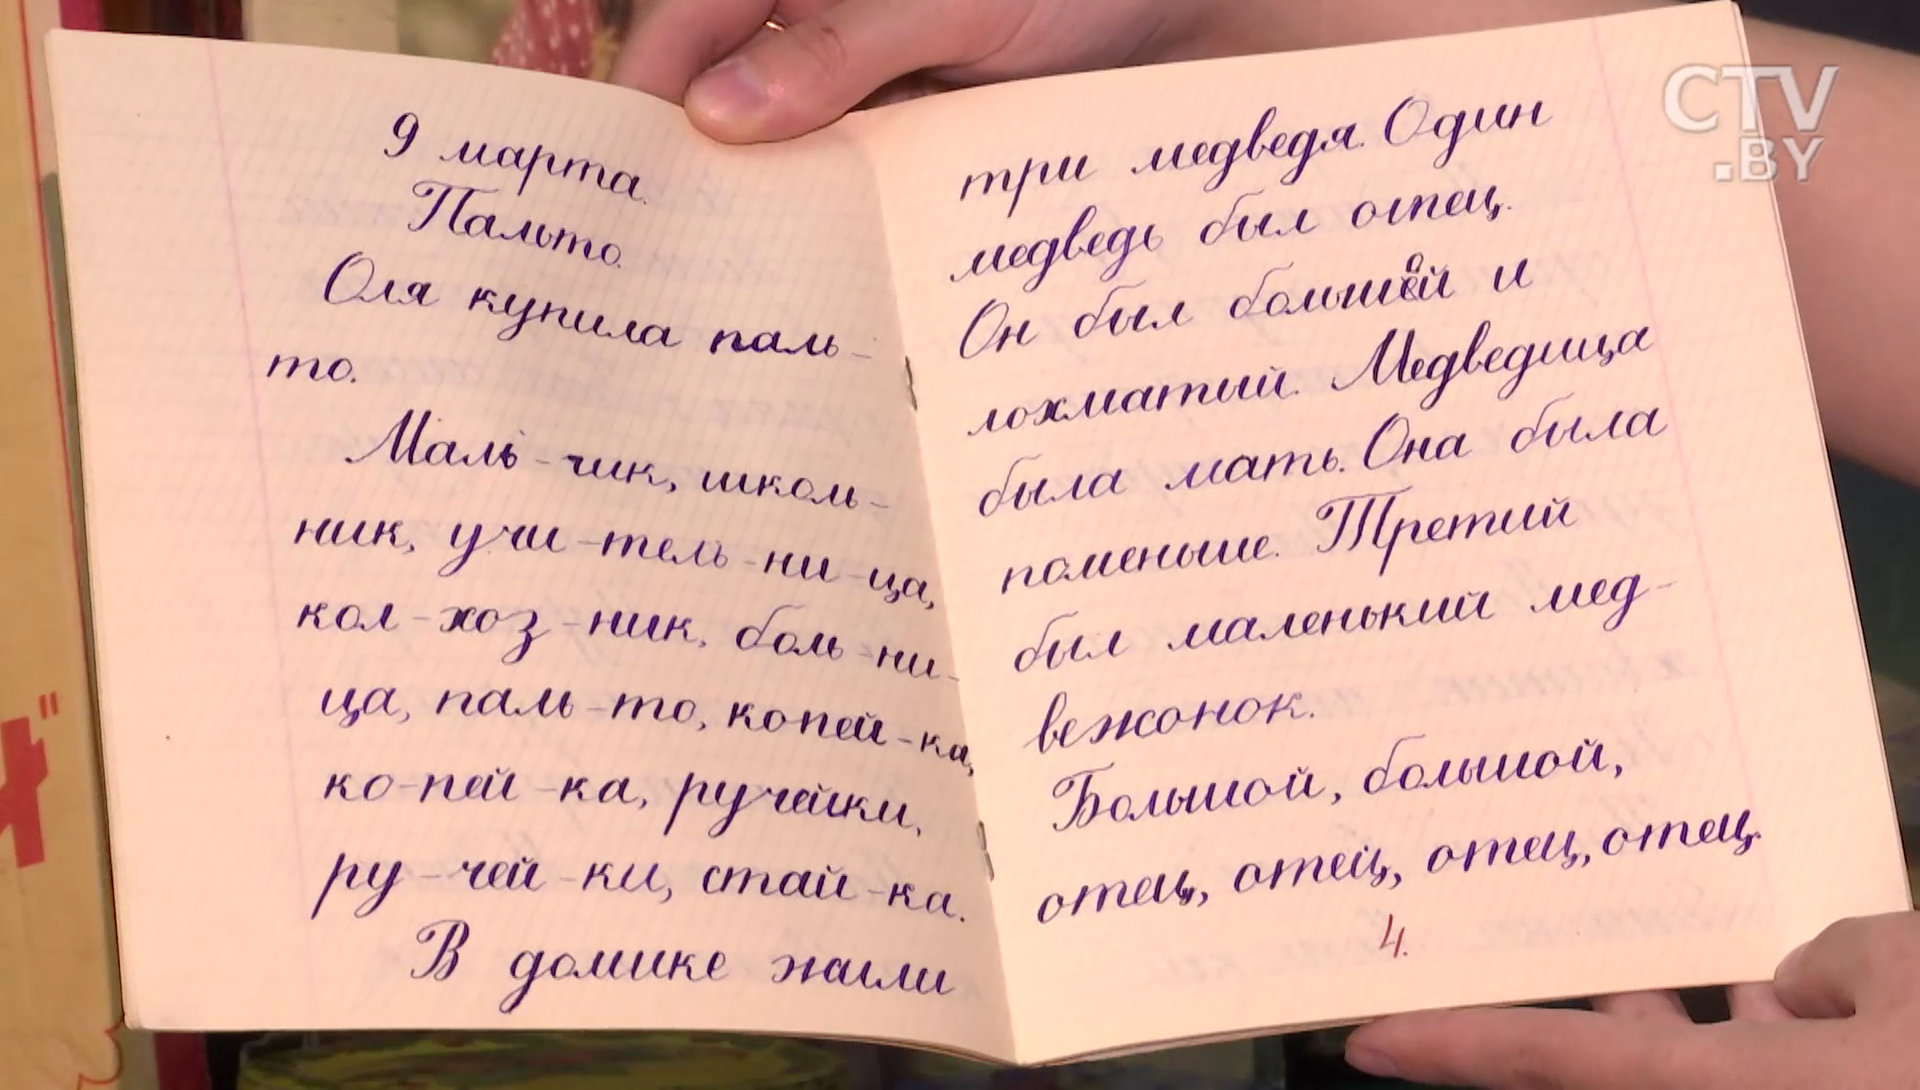 9 марта.
Пальто.
Оля купила паль-
то.
Маль-чик, школь-
ник, учи-тель-ни-ца,
кол-хоз-ник, боль-ни-
ца, паль-то, копей-ка,
ко-пей-ка, ручейки,
ру-чей-ки, стай-ка.
В домике жили
три медведя. Один
медведь был отец.
Он был большой и
лохматый. Медведица
была мать. Она была
поменьше. Третий
был маленький мед-
вежонок.
Большой, большой,
отец, отец, отец, отец.
4.
CTV
.BY
И"